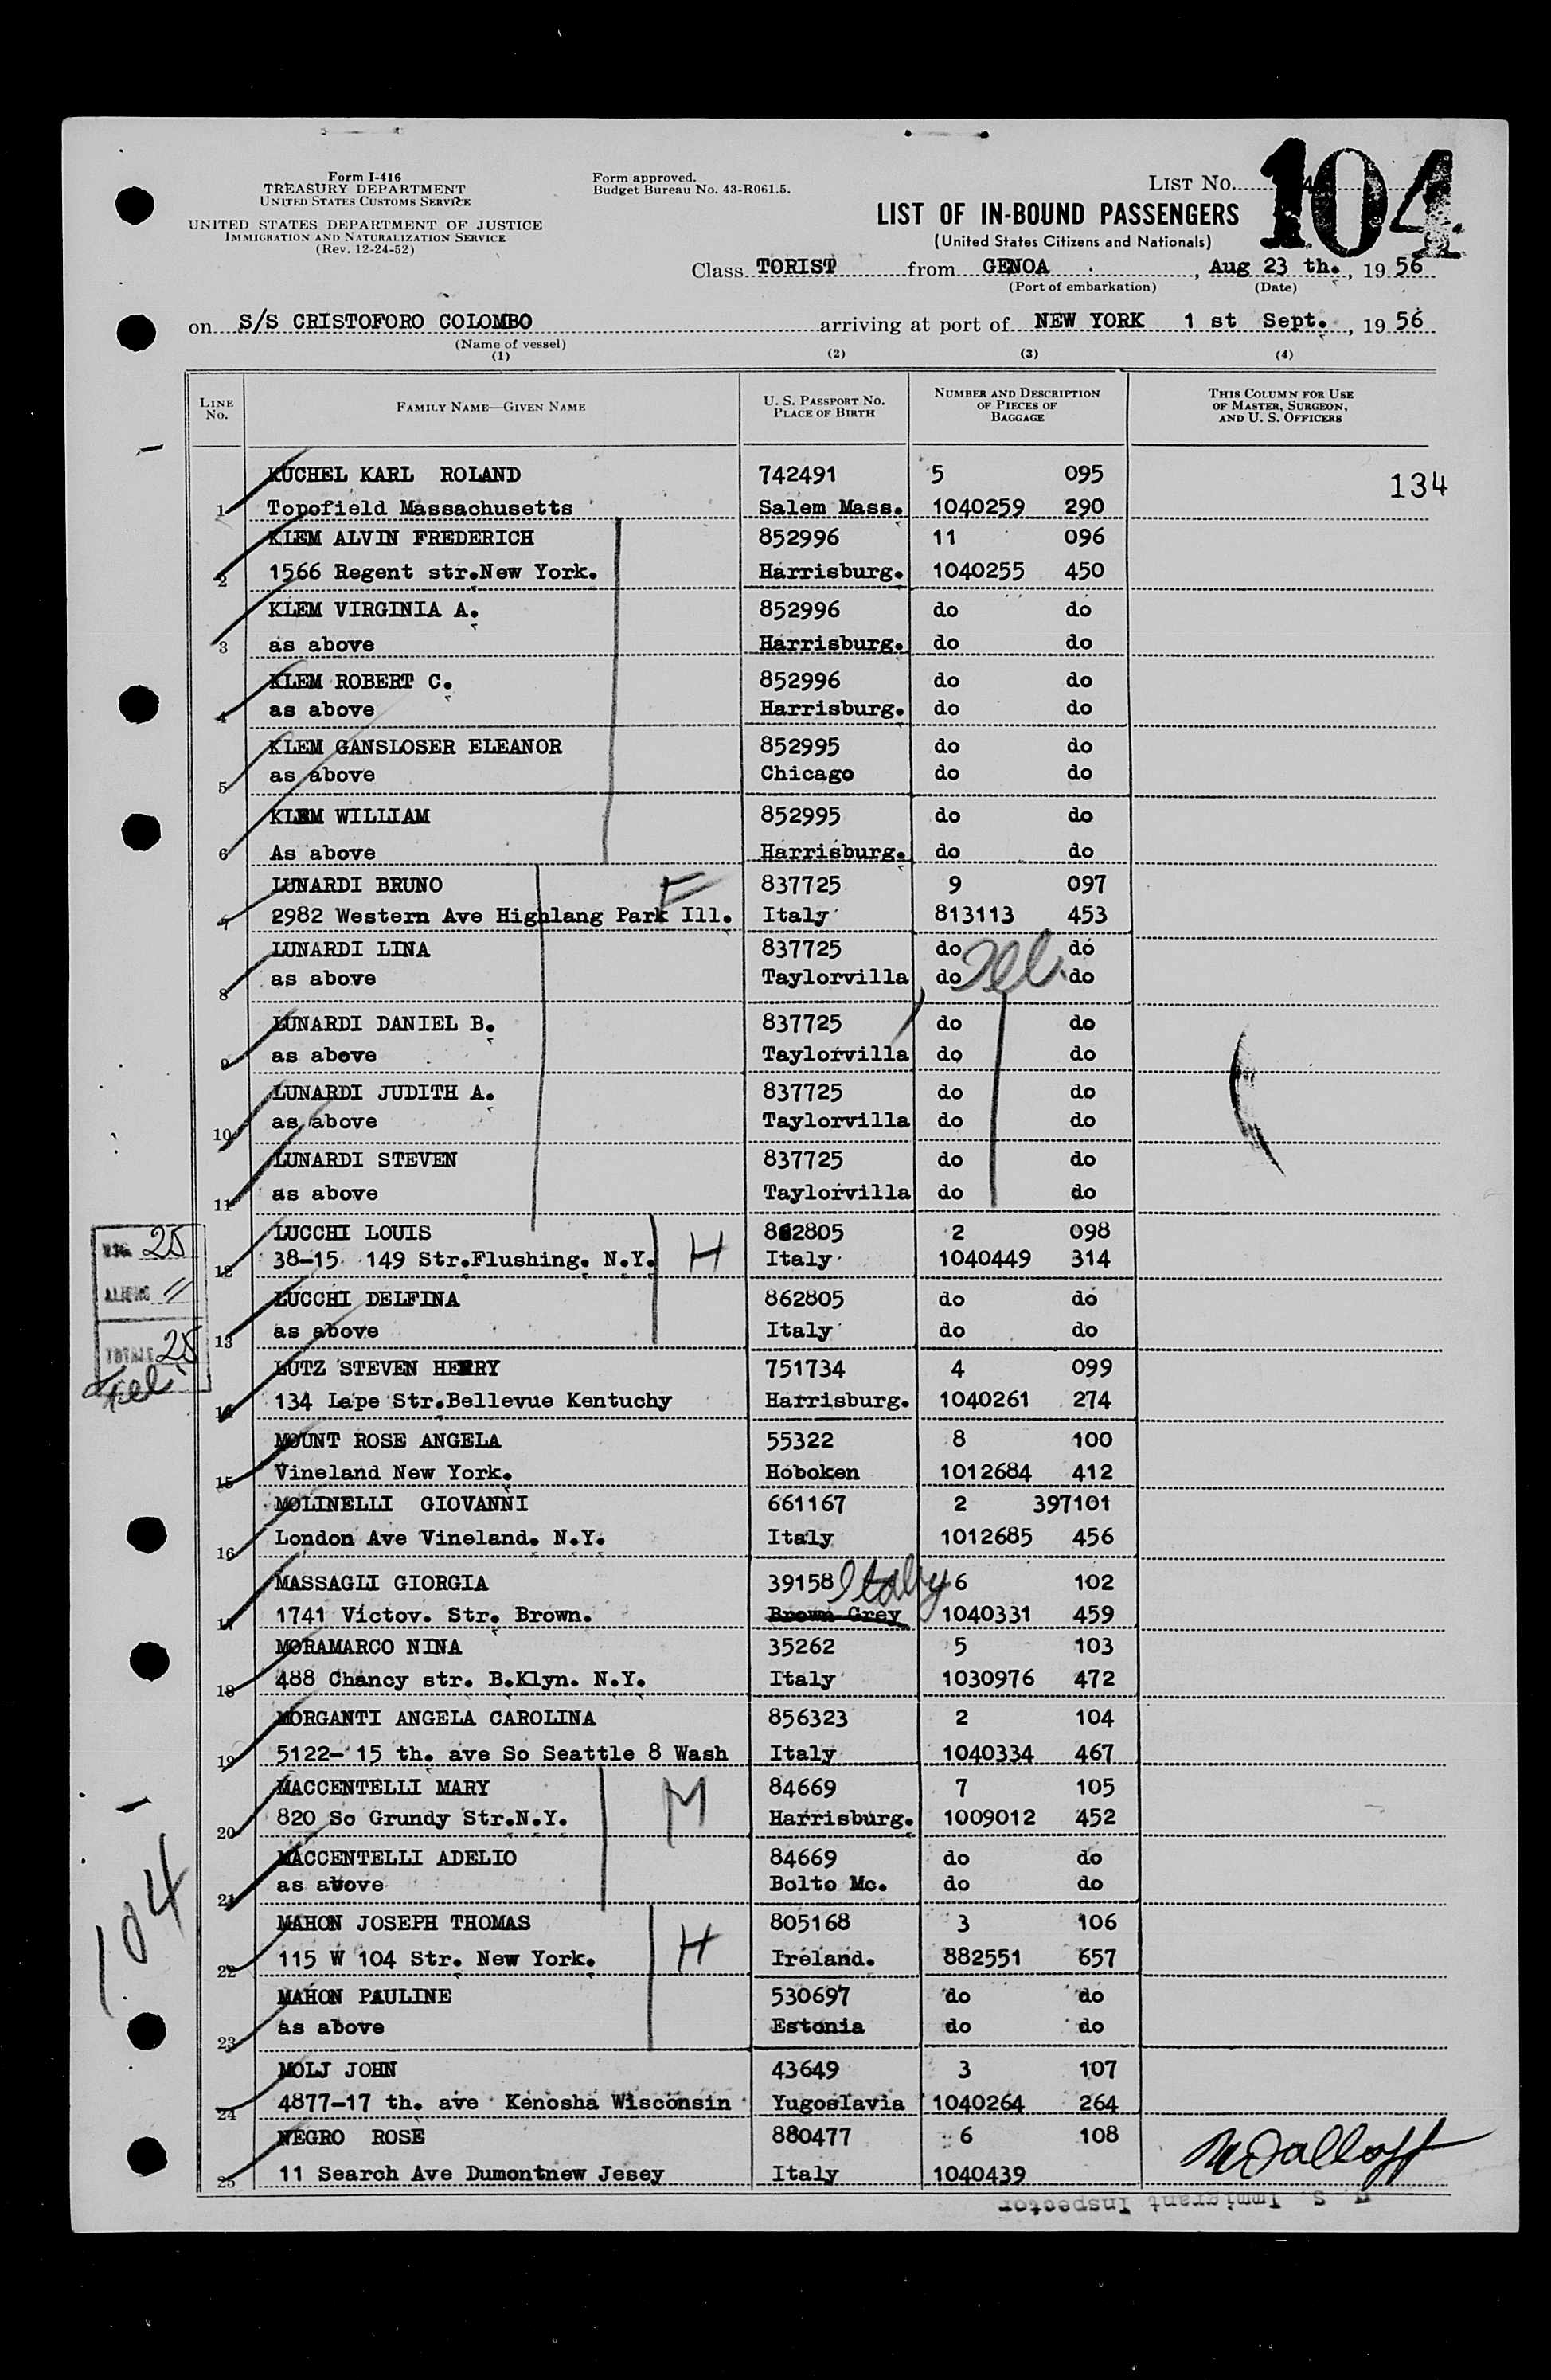 Form I-416
TREASURY DEPARTMENT
UNITED STATES CUSTOMS SERVICE
UNITED STATES DEPARTMENT OF JUSTICE
IMMIGRATION AND NATURALIZATION SERVICE
(Rev. 12-24-52)
Form approved.
Budget Bureau No. 43-R061.5.
LIST No. 104
LIST OF IN-BOUND PASSENGERS
(United States Citizens and Nationals)
Class TORIST from GENOA, Aug 23 th., 1956
(Port of embarkation) (Date)
on S/S CRISTOFORO COLOMBO arriving at port of NEW YORK 1 st Sept., 1956
(Name of vessel)
(1) (2) (3) (4)
LINE No. FAMILY NAME—GIVEN NAME U. S. PASSPORT NO. PLACE OF BIRTH NUMBER AND DESCRIPTION OF PIECES OF BAGGAGE THIS COLUMN FOR USE OF MASTER, SURGEON, AND U. S. OFFICERS
KUCHEL KARL ROLAND 742491 5 095
134
1 Topofield Massachusetts Salem Mass. 1040259 290
KLEM ALVIN FREDERICH 852996 11 096
2 1566 Regent str.New York. Harrisburg. 1040255 450
KLEM VIRGINIA A. 852996 do do
3 as above Harrisburg. do do
KLEM ROBERT C. 852996 do do
4 as above Harrisburg. do do
KLEM GANSLOSER ELEANOR 852995 do do
5 as above Chicago do do
KLEM WILLIAM 852995 do do
6 As above Harrisburg. do do
LUNARDI BRUNO F 837725 9 097
7 2982 Western Ave Highlang Park Ill. Italy 813113 453
LUNARDI LINA 837725 do do
8 as above Taylorvilla do do
LUNARDI DANIEL B. 837725 do do
9 as above Taylorvilla do do
LUNARDI JUDITH A. 837725 do do
10 as above Taylorvilla do do
LUNARDI STEVEN 837725 do do
11 as above Taylorvilla do do
LUCCHI LOUIS H 862805 2 098
12 38-15 149 Str.Flushing. N.Y. Italy 1040449 314
LUCCHI DELFINA 862805 do do
13 as above Italy do do
LUTZ STEVEN HENRY 751734 4 099
14 134 Lape Str.Bellevue Kentuchy Harrisburg. 1040261 274
MOUNT ROSE ANGELA 55322 8 100
15 Vineland New York. Hoboken 1012684 412
MOLINELLI GIOVANNI 661167 2 397101
16 London Ave Vineland. N.Y. Italy 1012685 456
MASSAGLI GIORGIA 39158 Italy 6 102
17 1741 Victov. Str. Brown. Brown Grey 1040331 459
MORAMARCO NINA 35262 5 103
18 488 Chancy str. B.Klyn. N.Y. Italy 1030976 472
MORGANTI ANGELA CAROLINA 856323 2 104
19 5122- 15 th. ave So Seattle 8 Wash Italy 1040334 467
MACCENTELLI MARY M 84669 7 105
20 820 So Grundy Str.N.Y. Harrisburg. 1009012 452
MACCENTELLI ADELIO 84669 do do
21 as above Bolto Mc. do do
MAHON JOSEPH THOMAS H 805168 3 106
22 115 W 104 Str. New York. Ireland. 882551 657
MAHON PAULINE 530697 do do
23 as above Estonia do do
MOLJ JOHN 43649 3 107
24 4877-17 th. ave Kenosha Wisconsin Yugoslavia 1040264 264
NEGRO ROSE 880477 6 108
25 11 Search Ave Dumontnew Jesey Italy 1040439
U. S. Immigrant Inspector
25
ALIENS 11
TOTALE 25
104